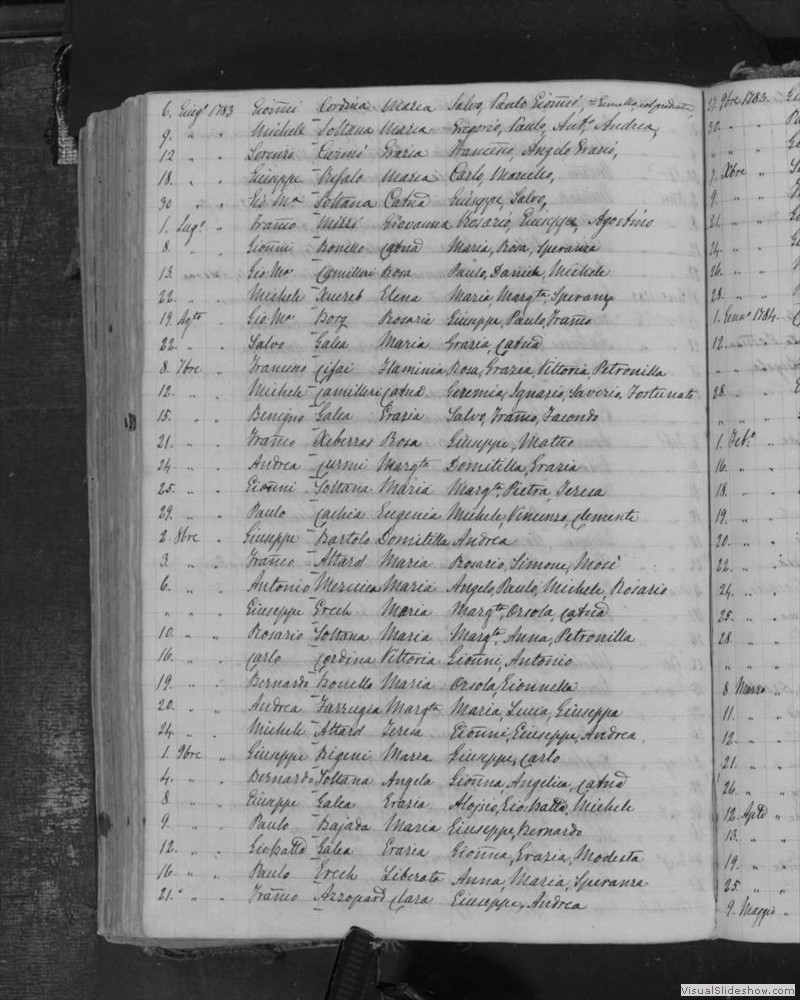 6. Giug.º 1783 Gioñi Cordina Maria Salvo, Paulo Gioñi, = Gemella, col predente,
9. " " Michele Soltana Maria Gregorio, Paulo, Ant.º Andrea,
12 " " Lorenzo Curmi Grazia Francesco, Angelo
18. " " Giuseppe Bufalo Maria Carlo,
30 " " Gio Mª Soltana Catnã Giuseppe, Salvo,
1. Lug.º " Frañco Mizzi Giovanna Rosario, Giuseppe, Agostino
8. " " Gioñni Bonello Catnã Maria, Rosa, Speranza
13. " " Gio Mª Camilleri Rosa Paulo, Daniele, Michele
22. " " Michele Xuereb Elena Maria, Margta, Speranza
19. Agto " Gio. Mª Borg Rosaria Giuseppe, Paulo, Frañco
22. " " Salvo Galea Maria Grazia, Catnã
8. 7bre " Francesco Cifai Flaminia Rosa, Grazia, Vittoria Petronilla
12. " " Michele Camilleri Catnã Geremia, Ignazio, Saverio, Fortunato
15. " " Benigno Galea Grazia Salvo, Frañco, Facondo
21. " " Frañco Xeberras Rosa Giuseppe, Matteo
24. " " Andrea Curmi Margta Domitilla, Grazia
25. " " Gioñni Soltana Maria Margta, Pietra, Teresa
29. " " Paulo Cachia Eugenia Michele, Vincenzo, Clemente
2. 8bre " Giuseppe Bartolo Domitilla Andrea
3. " " Frañco Attard Maria Rosario, Simone, Mosè
6. " " Antonio Mercieca Maria Angelo, Paulo, Michele, Rosario
" " " Giuseppe Grech Maria Margta, Orsola, Catnã
10. " " Rosario Soltana Maria Margta, Anna, Petronilla
16. " " Carlo Cordina Vittoria Gioñni, Antonio
19. " " Bernardo Bonello Maria Orsola, Gionnella
20. " " Andrea Farrugia Margta Maria, Lucia, Giuseppa
24. " " Michele Attard Teresa Gioñni, Giuseppe, Andrea
1. 9bre " Giuseppe Bigeni Maria Giuseppe, Carlo
4. " " Bernardo Soltana Angela Gioñna, Angelica, Catnã
8 " " Giuseppe Galea Grazia Aloisio, Gio Batta, Michele
9. " " Paulo Bajada Maria Giuseppe, Bernardo
12. " " Gio Batta Galea Grazia Gioñna, Grazia, Modesta
16. " " Paulo Grech Liberata Anna, Maria, Speranza
21. " " Frañco Azzopard Clara Giuseppe, Andrea
27. 9bre 1783.
30. " "
" " "
7. Xbre "
9. " "
21. " "
24. " "
26. " "
28. " "
1. Genn.º 1784.
12. " "
" " "
28. " "
" " "
1. Feb.º "
16. " "
18. " "
19. " "
20. " "
22. " "
24. " "
25. " "
28. " "
" " "
8 Marzo "
11. " "
12. " "
21. " "
26. " "
12. Aple "
13. " "
19. " "
25. " "
9. Maggio "
VisualSlideshow.com